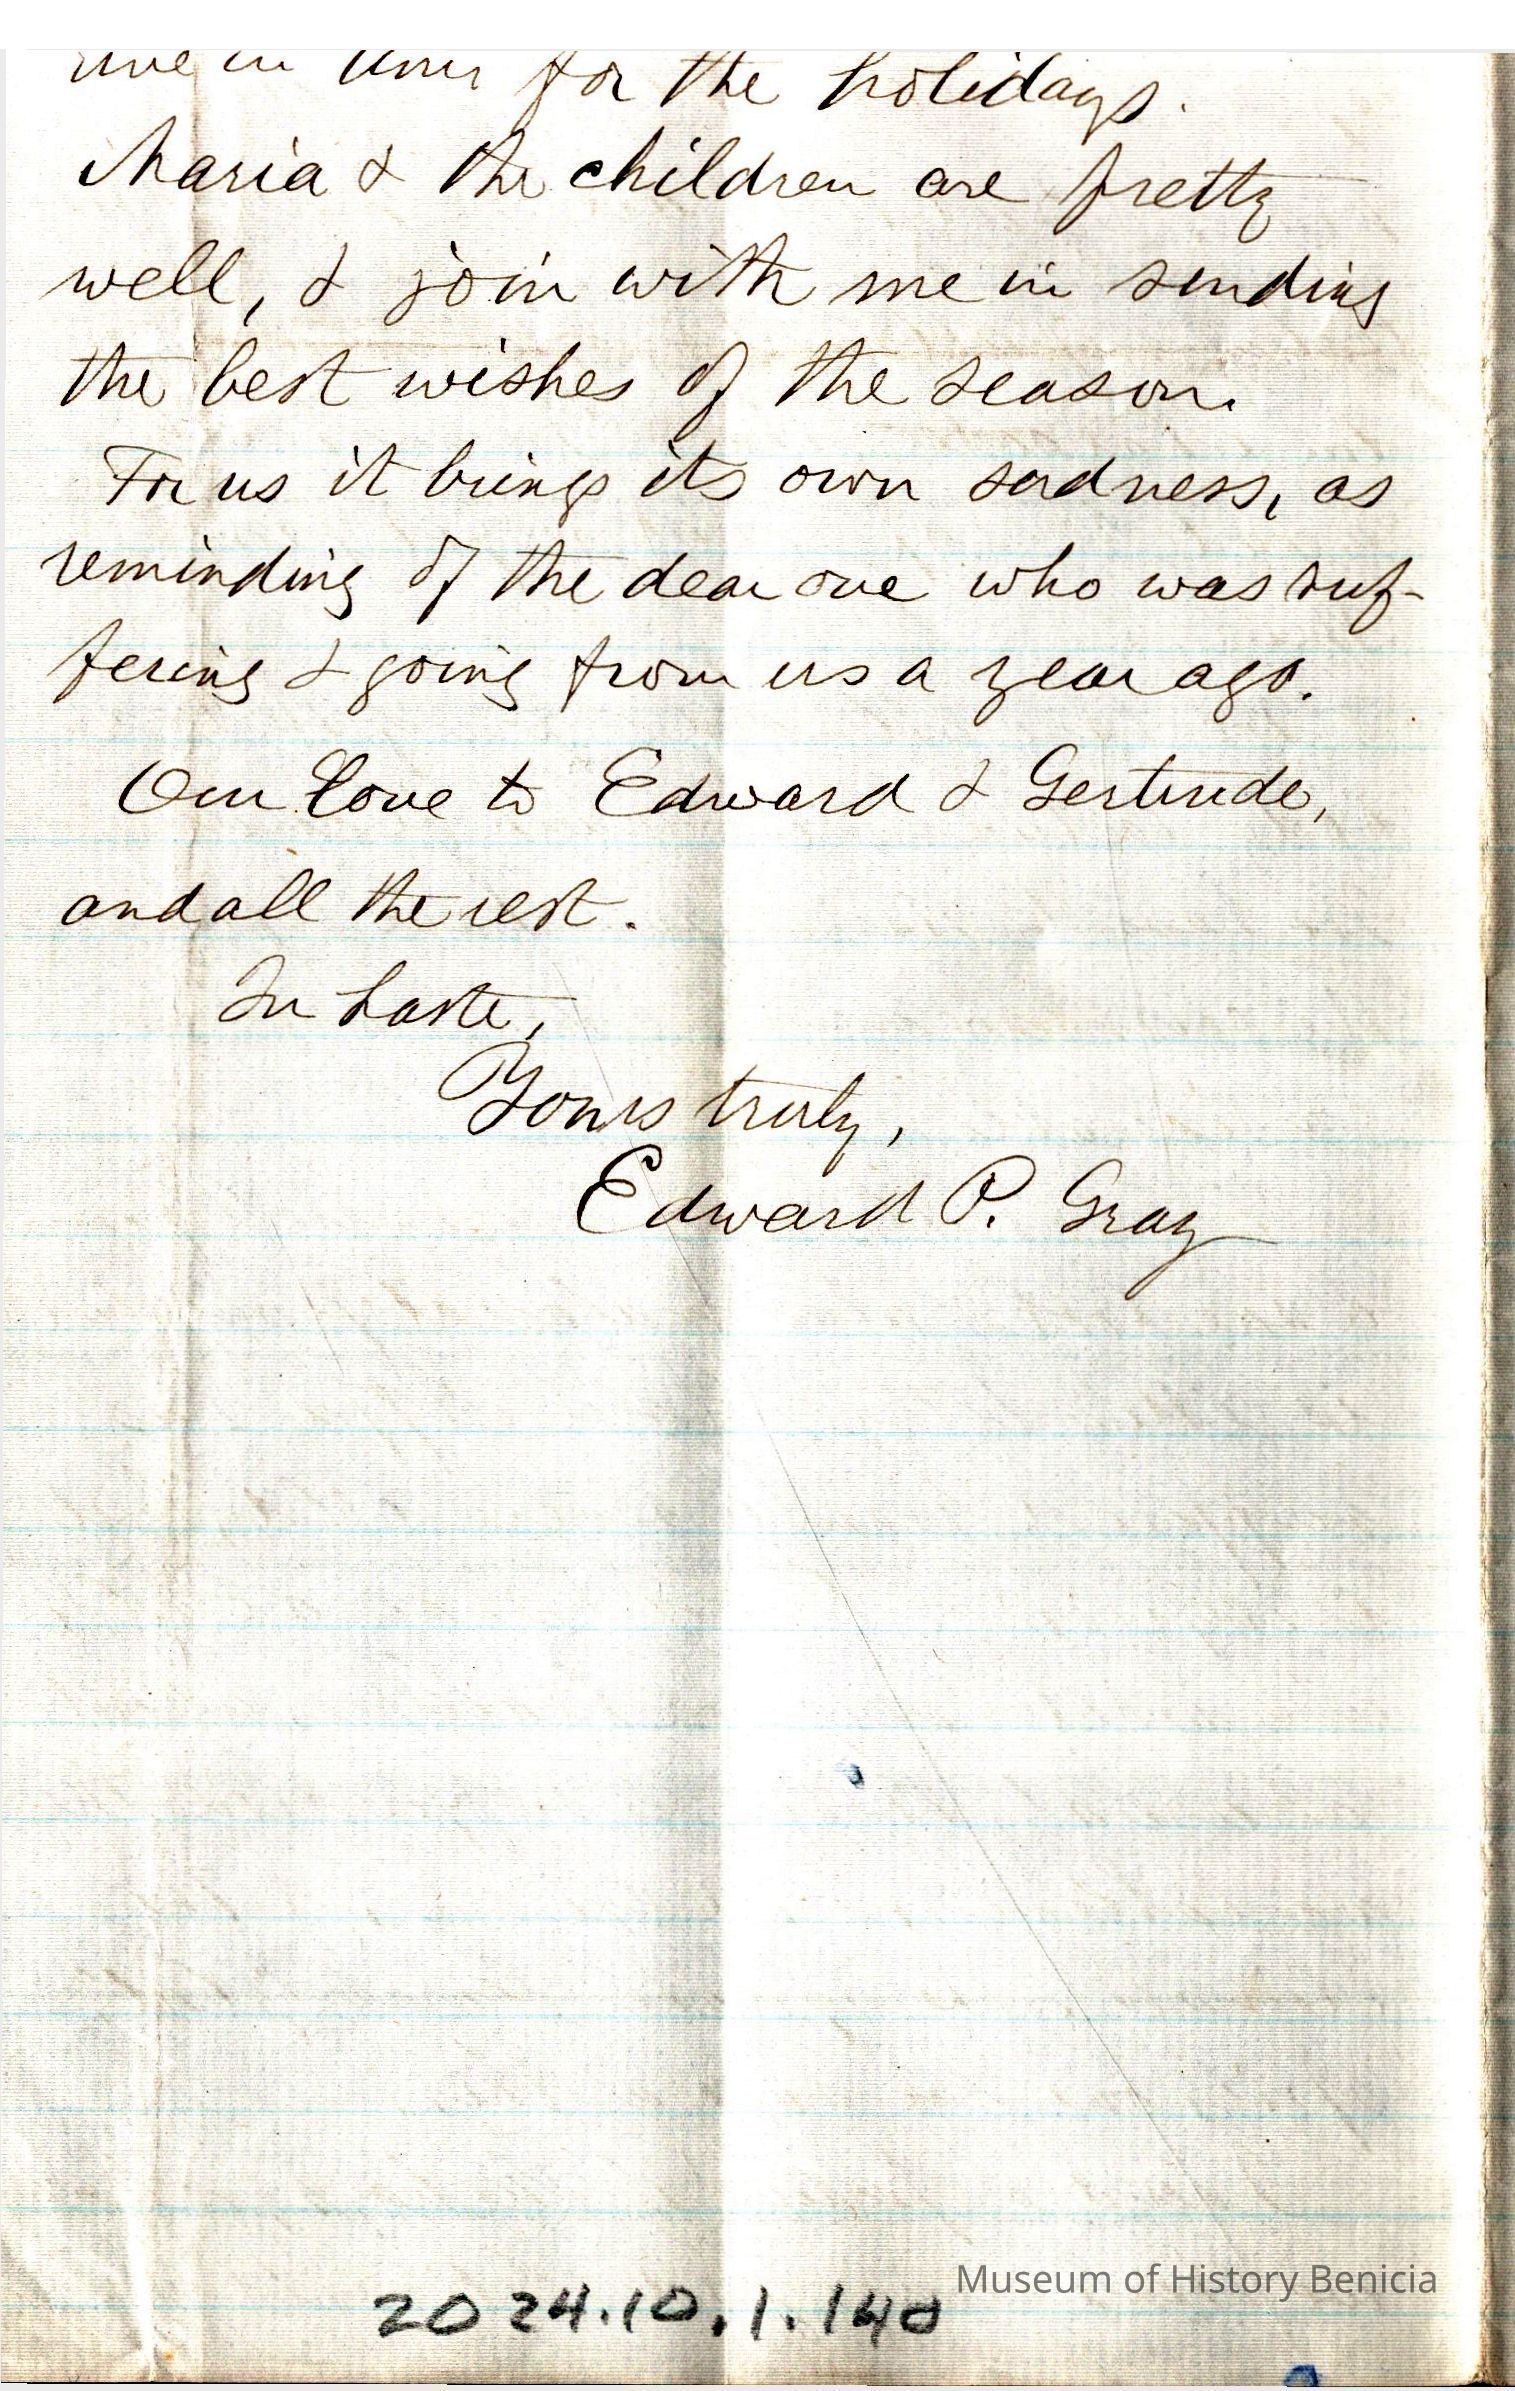 rive in time for the holidays.
Maria & the children are pretty
well, & join with me in sending
the best wishes of the season.
For us it brings its own sadness, as
reminding of the dear one who was suf-
fering & going from us a year ago.
Our love to Edward & Gertrude,
and all the rest.
In haste,
Yours truly,
Edward P. Gray
Museum of History Benicia
2024.10.1.140